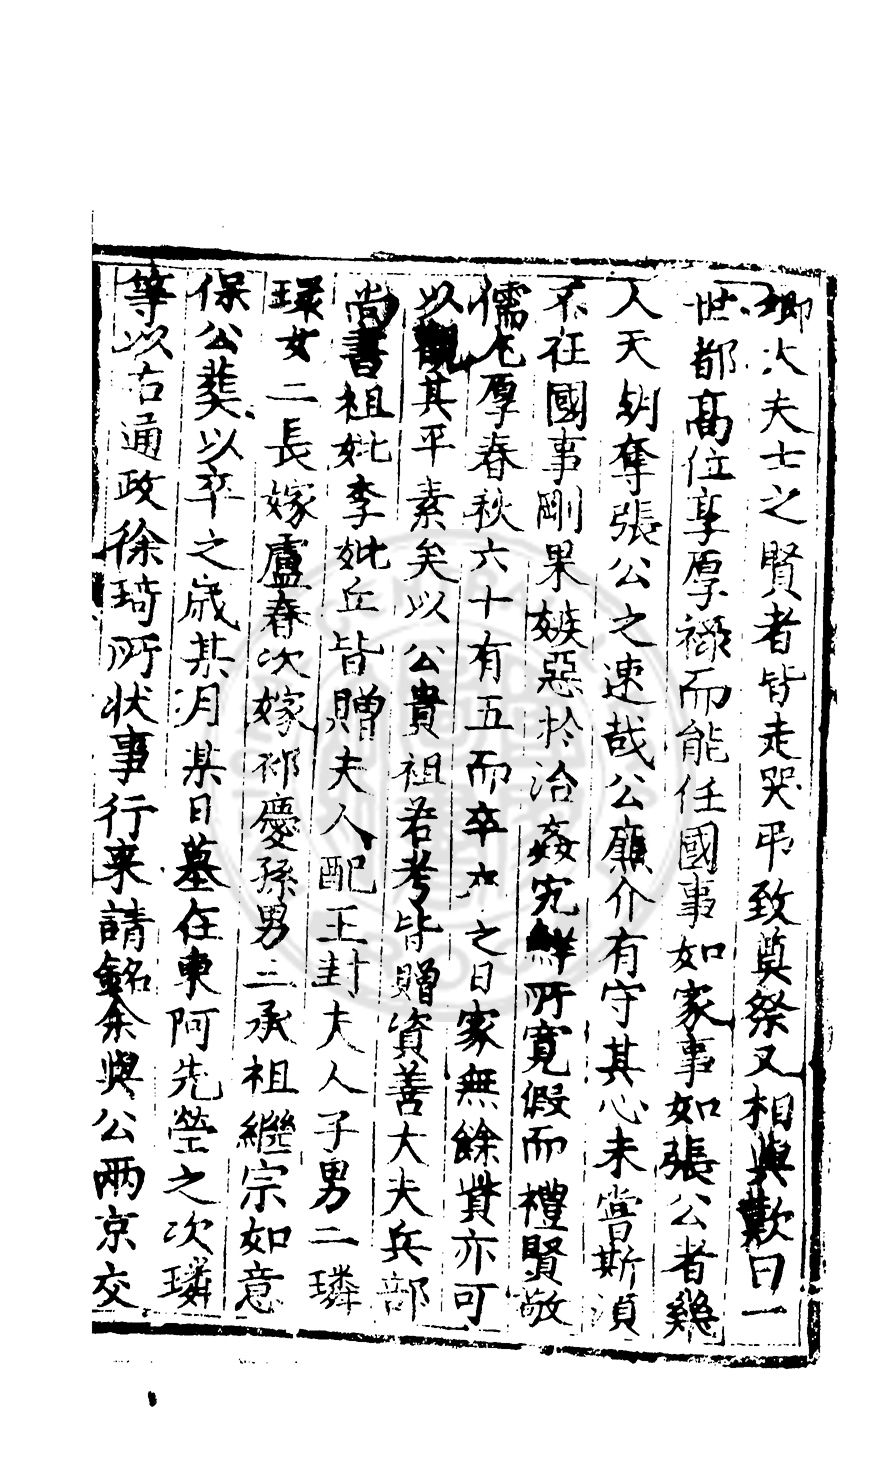 卿大夫士之賢者皆走哭弔致奠祭又相與歎曰一
世都高位享厚祿而能任國事如家事如張公者幾
人天朝奪張公之速哉公廉介有守其心未嘗斯湏
不在國事剛果嫉惡於治姦宄鮮所寛假而禮賢敬
儒尤厚春秋六十有五而卒卒之日家無餘貲亦可
以觀其平素矣以公貴祖若考皆贈資善大夫兵部
尚書祖妣李妣丘皆贈夫人配王封夫人子男二璘
環女二長嫁盧春次嫁祁慶孫男三承祖繼宗如意
保公葬以卒之歲某月某日墓在東阿先塋之次璘
等以右通政徐琦所状事行来請銘余與公兩京交